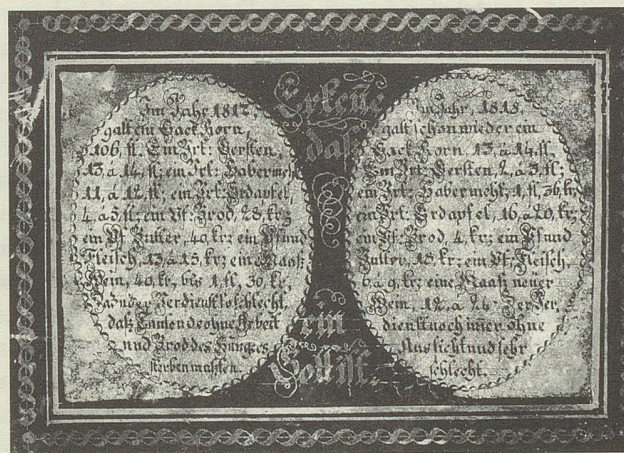 Im Jahr 1817,
galt ein Sack Korn,
106, fl. Ein Vrt: Gersten,
13 a 14, fl; ein Vrt: Habermehl
11, a 12, fl; ein Vrt: Erdapfel,
4, a 5, fl; ein Pf: Brod, 28, kr;
ein Pf Butter, 40, kr; ein Pfund
Fleisch, 13 a 15, kr; ein Maaß
Wein, 40, kr, bis 1, fl, 30, kr,
der Verdienst so schlecht,
daß ohne Arbeit
und Brod des Hungers
sterben mußten.
Erkene
daß
ein
Gott ist.
Im Jahr, 1818,
galt schon wieder ein
Sack Korn, 13 a 14, fl.
Ein Vrt: Gersten, 2, a 3, fl;
ein Vrt: Habermehl, 1, fl, 36, kr,
ein Vrt: Erdapfel, 16, a 20, kr;
ein Pf: Brod, 4, kr; ein Pfund
Butter, 18 kr; ein Pf: Fleisch,
6 a 9, kr; eine Maaß neüer
Wein, 12, a 24. Der Ver
dienst noch imer ohne
Aussicht und sehr
schlecht.